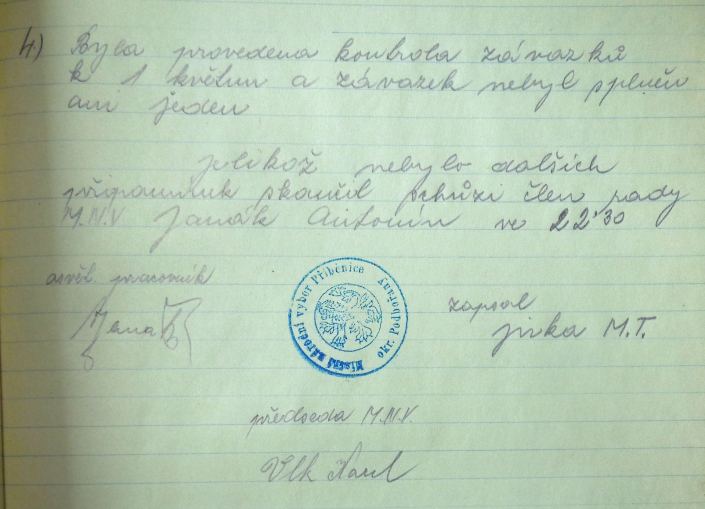 4) Byla provedena kontrola závazků
k 1 květnu a závazek nebyl splněn
ani jeden
jelikož nebylo dalších
připomínek skončil schůzi člen rady
M.N.V Janák Antonín ve 22'30
osvět. pracovník
zapsal
Jirka M.T.
Místní národní výbor Přibenice
okr. Podbořany
předseda M.N.V.
Vlk Karel